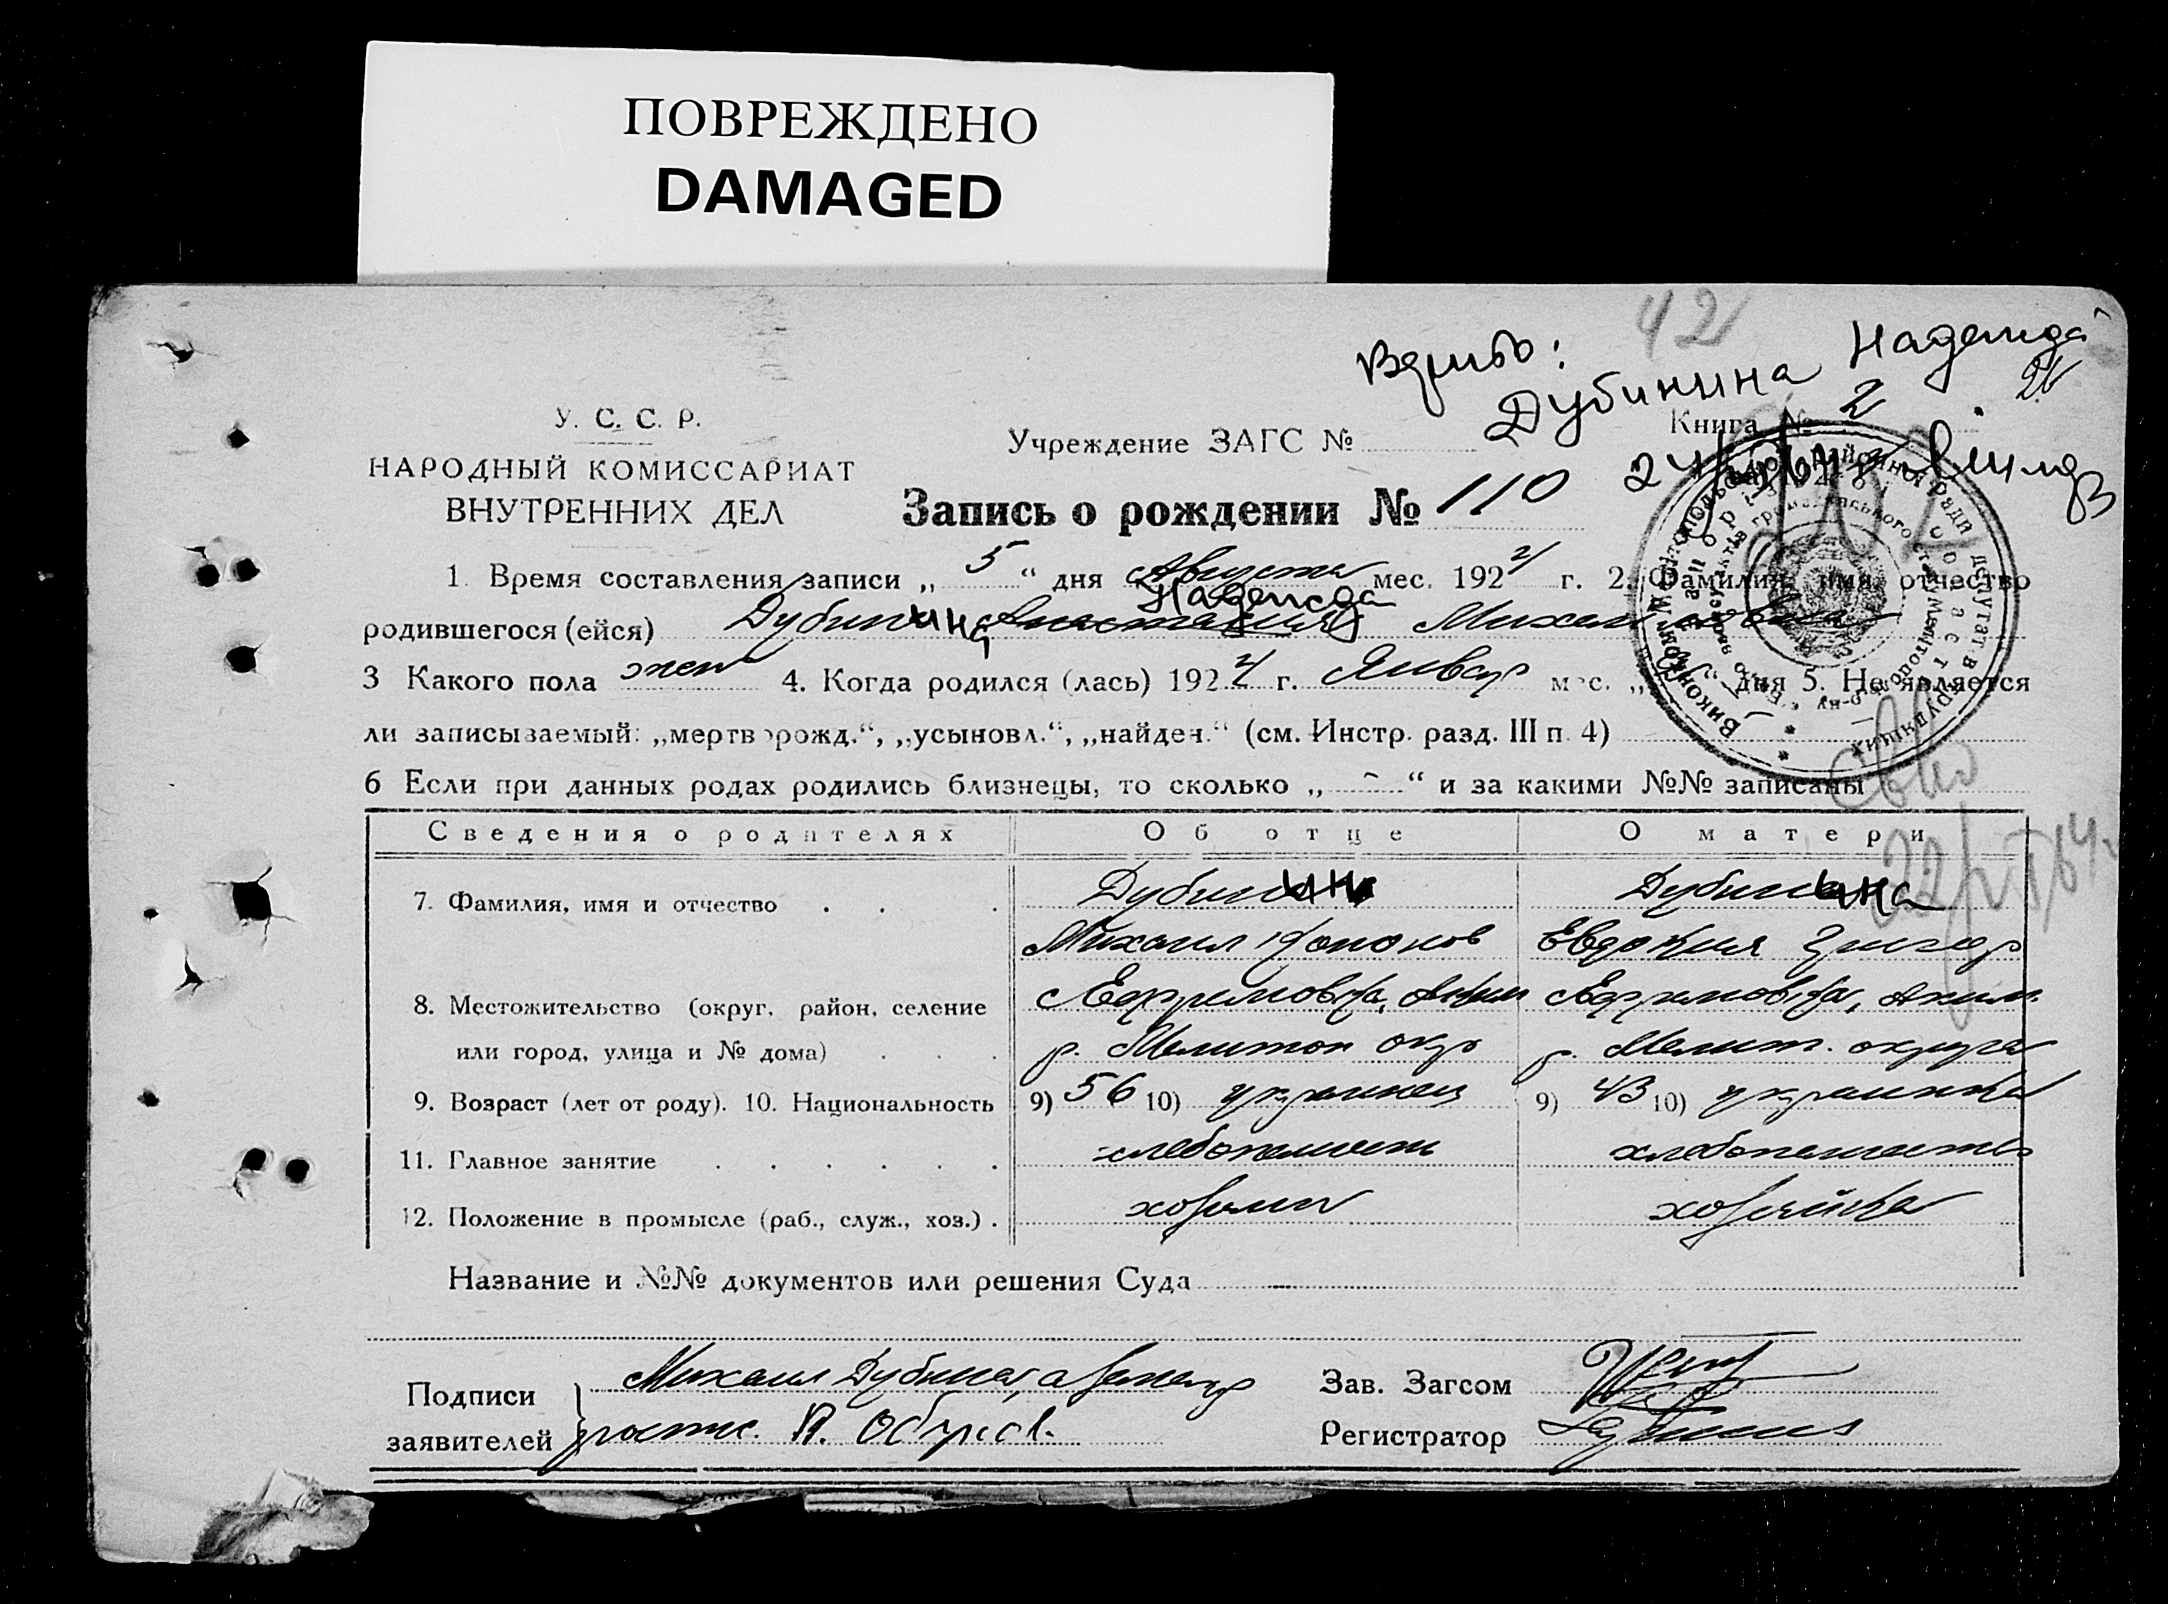 ПОВРЕЖДЕНО
DAMAGED
42
Вірно:
Дубинина Надежда
21
У. С. С. Р.
НАРОДНЫЙ КОМИССАРИАТ
ВНУТРЕННИХ ДЕЛ
Учреждение ЗАГС №
Книга № 2
Запись о рождении № 110
1. Время составления записи „ 5 “ дня Августа мес. 1924 г. 2. Фамилия, имя, отчество
Надежда
родившегося (ейся) Дубинина Анастасия Михайловна
3 Какого пола жен 4. Когда родился (лась) 1924 г. Январ мес. „ дня 5. Не является
ли записываемый: „мертворожд.“, „усыновл.“, „найден.“ (см. Инстр. разд. III п. 4)
6 Если при данных родах родились близнецы, то сколько „ - “ и за какими №№ записаны
Сведения о родителях Об отце О матери
7. Фамилия, имя и отчество Дубинин Дубинина
Михаил Евдокия
8. Местожительство (округ, район, селение Ефремовка, Аким Ефремовка, Аким.
или город, улица и № дома) р. Мелитоп окр р. Мелит. округа
9. Возраст (лет от роду). 10. Национальность 9) 56 10) украинец 9) 43 10) украинка
11. Главное занятие хлебопашест хлебопашество
12. Положение в промысле (раб., служ., хоз.) . хозяин хозяйка
Название и №№ документов или решения Суда —
Подписи заявителей Михаил Дубина, а
Зав. Загсом
Регистратор